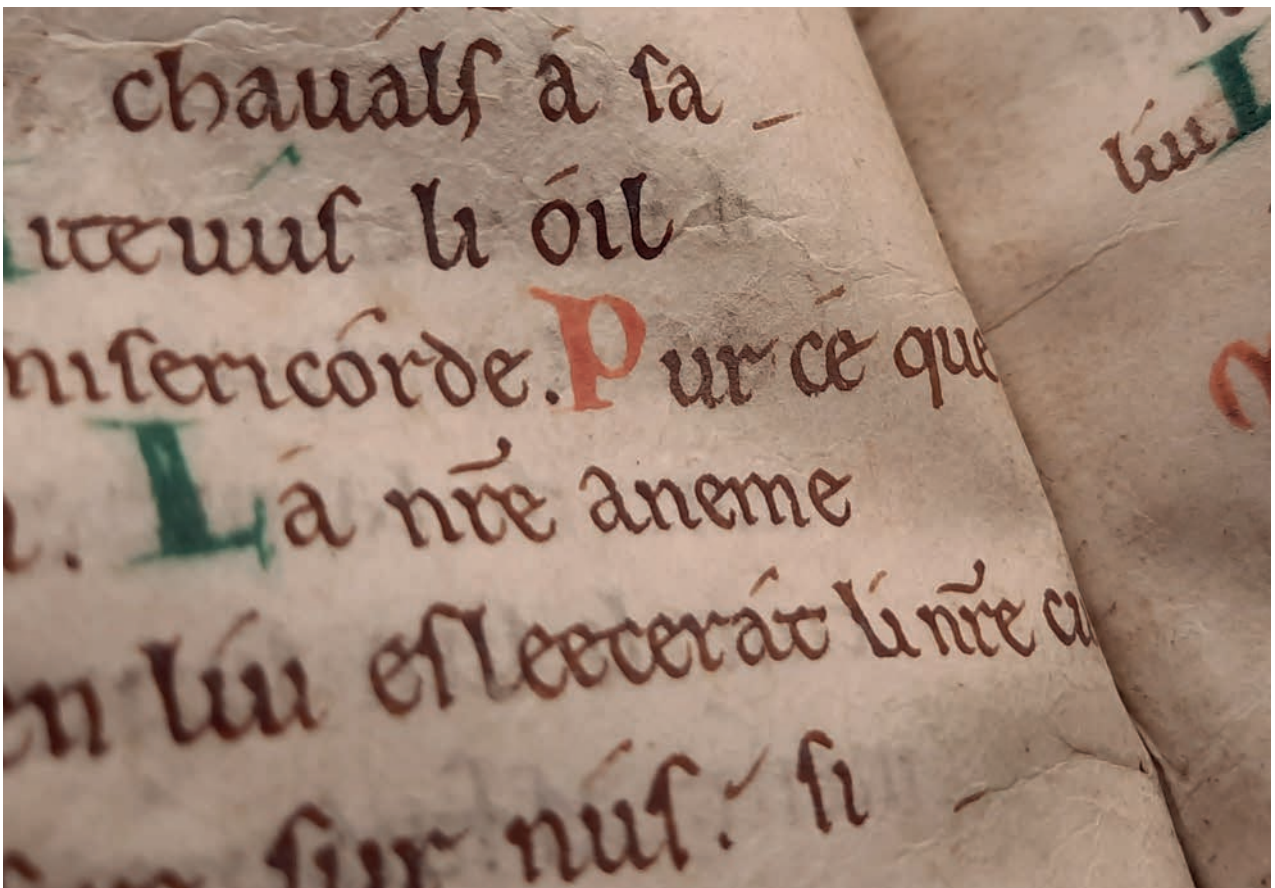 chauals á sa
iteuus li óil
misericórde. Pur cé que
Lá nr̄e aneme
en líu esleecerát li nr̄e cu
sur nús. si
líu. L